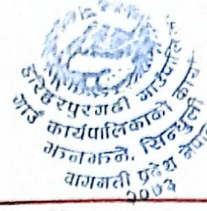 हरिहरपुरगढी गाउँपालिका
गाउँ कार्यपालिकाको कार्या
झनझने, सिन्धुली
वागमती प्रदेश नेपाल
२०७३